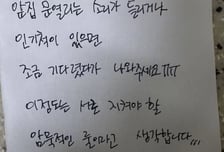 앞집 문열리는 소리가 들리거나
인기척이 있으면
조금 기다렸다가 나와주세요ㅠㅠ
이정도는 서로 지켜야 할
암묵적인 룰이라고 생각합니다...